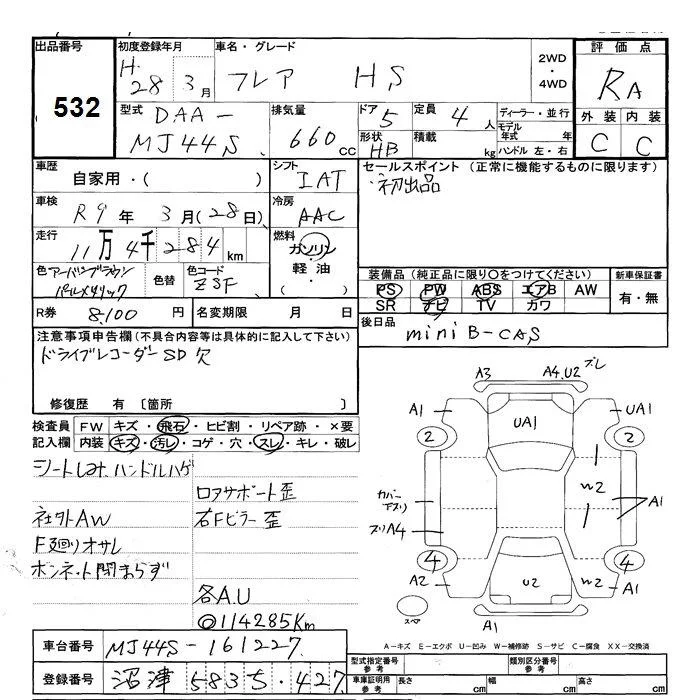 出品番号
532
初度登録年月
H 28 3月
車名・グレード
フレア HS
2WD
・
4WD
評価点
RA
外装 内装
C C
型式
DAA-
MJ44S
排気量
660cc
ドア
5
定員
4人
形状
HB
積載
kg
ディーラー・並行
モデル年式 年
ハンドル 左・右
車歴
自家用・( )
シフト
IAT
車検
R9年 3月(28日)
冷房
AAC
走行
11万4千284km
燃料
ガソリン
・
軽油
・
( )
色 アーバンブラウン
パールメタリック
色替
色コード
ZSF
セールスポイント (正常に機能するものに限ります)
初出品
装備品 (純正品に限り○をつけてください)
PS PW ABS エアB AW
SR ナビ TV カワ
新車保証書
有・無
R券 8,100円
名変期限 月 日
後日品
mini B-CAS
注意事項申告欄 (不具合内容等は具体的に記入して下さい)
ドライブレコーダーSD欠
修復歴 有 〔箇所 〕
検査員記入欄
FW キズ・飛石・ヒビ割・リペア跡・×要
内装 キズ・汚レ・コゲ・穴・スレ・キレ・破レ
シートしみ、ハンドルハゲ
ロアサポート歪
社外AW
右Fピラー歪
F廻りオサレ
ボンネット閉まらず
各A.U
◎114285Km
A3
A4,U2
ズレ
A1
UA1
UA1
2
2
カバー
W2
A1
スリA4
4
4
A2
U2
W2
A1
スペア
A1
A-キズ E-エクボ U-凹み W-補修跡 S-サビ C-腐食 XX-交換済
車台番号
MJ44S-161227
登録番号
沼津 583 427
型式指定番号
参考
類別区分番号
参考
車庫証明用
参考
長さ cm
幅 cm
高さ cm